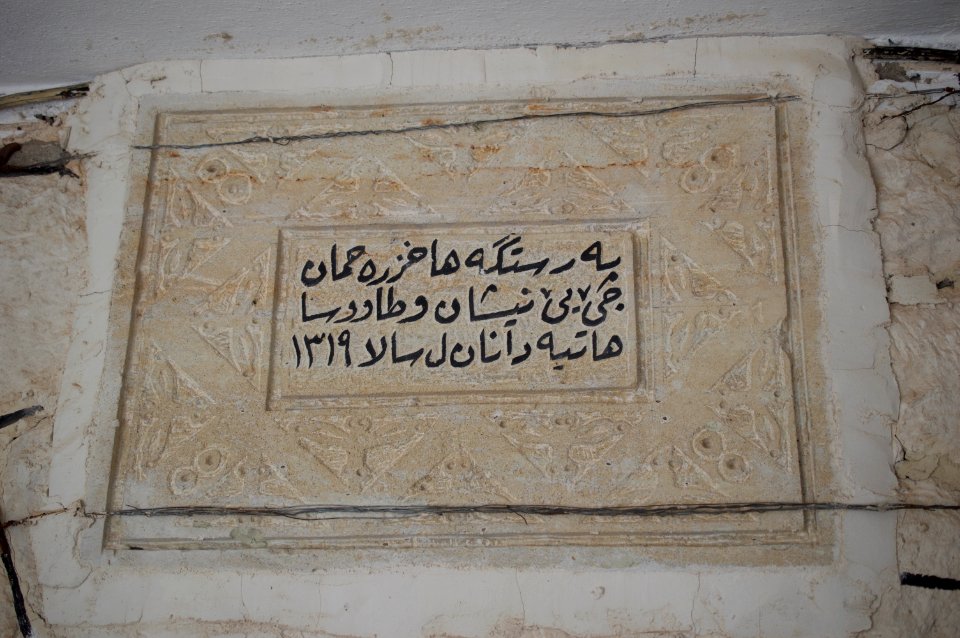 په رستگه ها خزره حمان
جێ یێ نیشان و طاووسا
هاتیه دانان ل سالا ١٣١٩